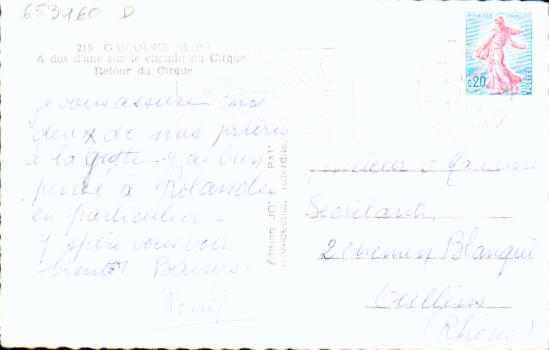 653160 D
215 GAVARNIE (H.-P.)
A dos d'âne sur le chemin du Cirque
Retour du Cirque
je vous assure tous
deux de nos prières
à la Grotte. j'ai bien
pensé à Rolande
en particulier -
J'espère vous voir
bientôt Baisers.
Edition
REPUBLIQUE FRANÇAISE
0,20
Monsieur et Madame
Secrétant
2 chemin Blanqui
Oullins
(Rhône)